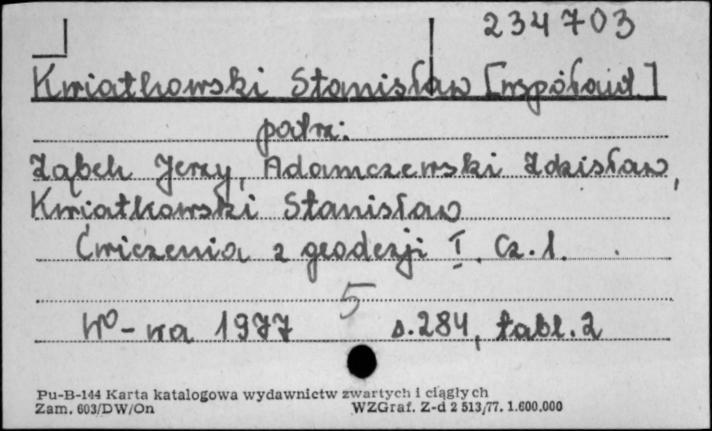 234703
Kwiatkowski Stanisław [współaut.]
patrz:
Ząbek Jerzy, Adamczewski Zdzisław,
Kwiatkowski Stanisław
Ćwiczenia z geodezji I. Cz. 1.
5
W-wa 1977 s. 284, tabl. 2
Pu-B-144 Karta katalogowa wydawnictw zwartych i ciągłych
Zam. 603/DW/On WZGraf. Z-d 2 513/77. 1.600.000